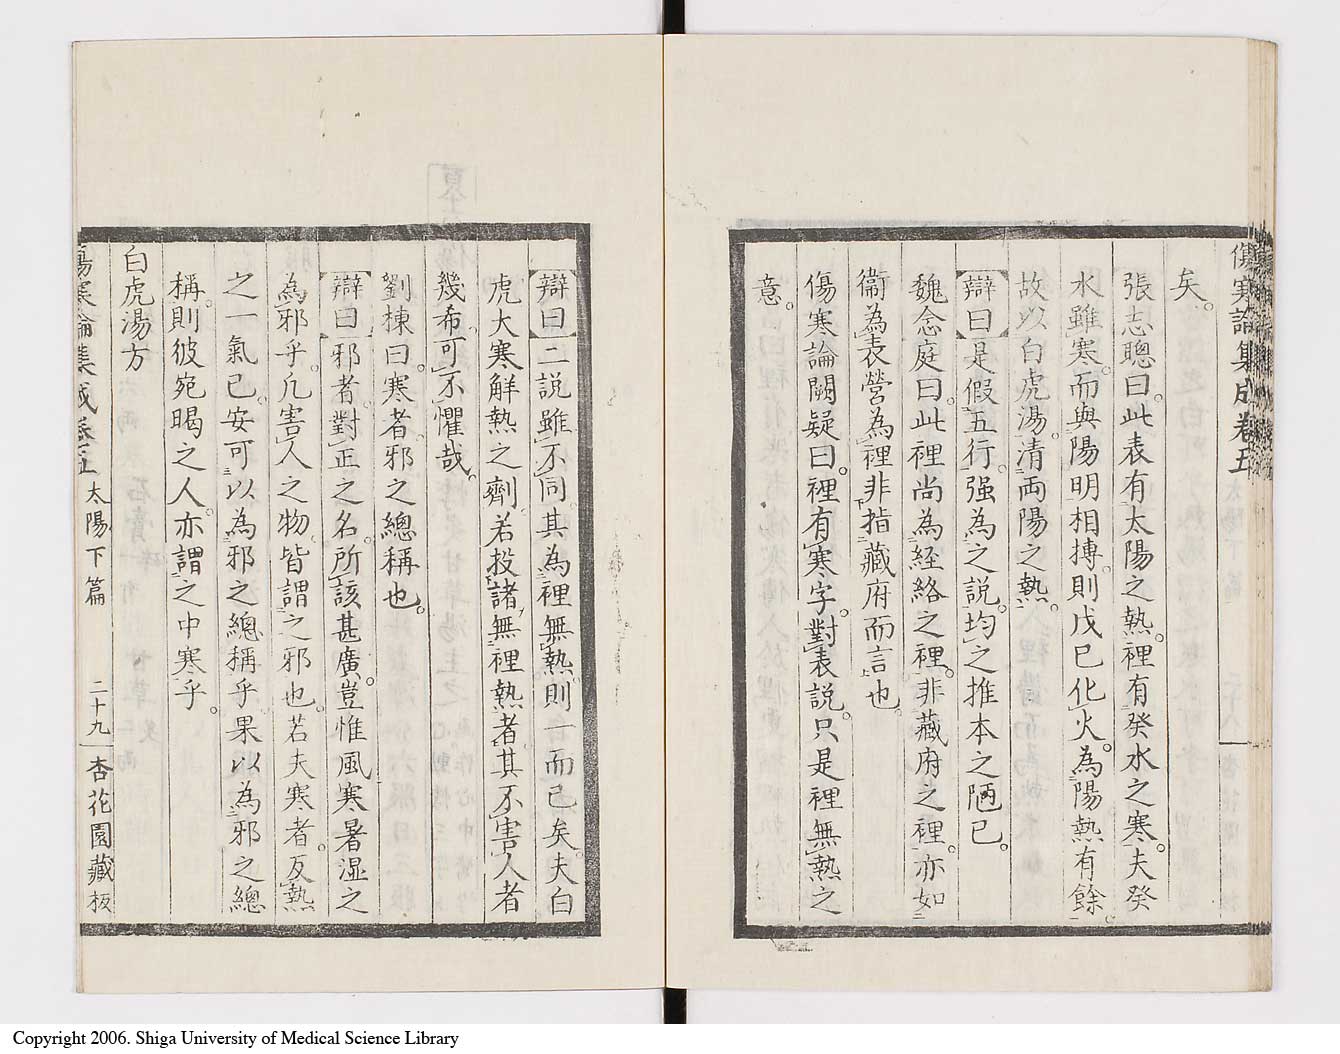 傷寒論集成卷五
矣。
張志聰曰。此表有太陽之熱。裡有癸水之寒。夫癸
水雖寒。而與陽明相搏。則戊巳化火。為陽熱有餘
故以白虎湯。清兩陽之熱。
辯曰是假五行。强為之說。均之推本之陋已。
魏念庭曰。此裡尚為經絡之裡。非藏府之裡。亦如
衞為表營為裡。非指藏府而言也。
傷寒論闕疑曰。裡有寒字。對表說。只是裡無熱之
意。
辯曰二說雖不同。其為裡無熱。則一而已矣。夫白
虎大寒解熱之劑。若投諸無裡熱者。其不害人者
幾希。可不懼哉。
劉棟曰。寒者。邪之總稱也。
辯曰邪者。對正之名。所該甚廣。豈惟風寒暑湿之
為邪乎。凡害人之物。皆謂之邪也。若夫寒者。反熱
之一氣已。安可以為邪之總稱乎。果以為邪之總
稱。則彼宛暍之人。亦謂之中寒乎。
白虎湯方
傷寒論集成卷五 太陽下篇 二十九 杏花園藏板
Copyright 2006. Shiga University of Medical Science Library